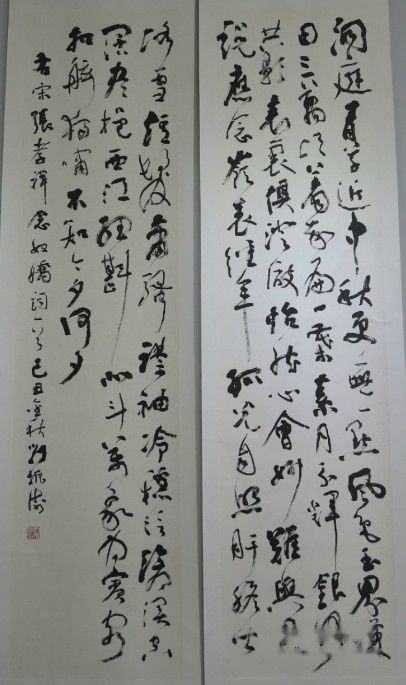 洞庭青草近中秋更無一點風色玉界瓊
田三万頃著我扁舟一葉素月分輝銀河
共影表裏俱澄澈怡然心會妙處難與君
說應念嶺表經年孤光自照肝膽皆
冰雪短髮蕭騷襟袖冷穩泛滄溟空
闊盡挹西江細斟北斗萬象為賓客
扣舷獨嘯不知今夕何夕
右宋張孝祥念奴嬌詞一首己丑金秋劉振濤